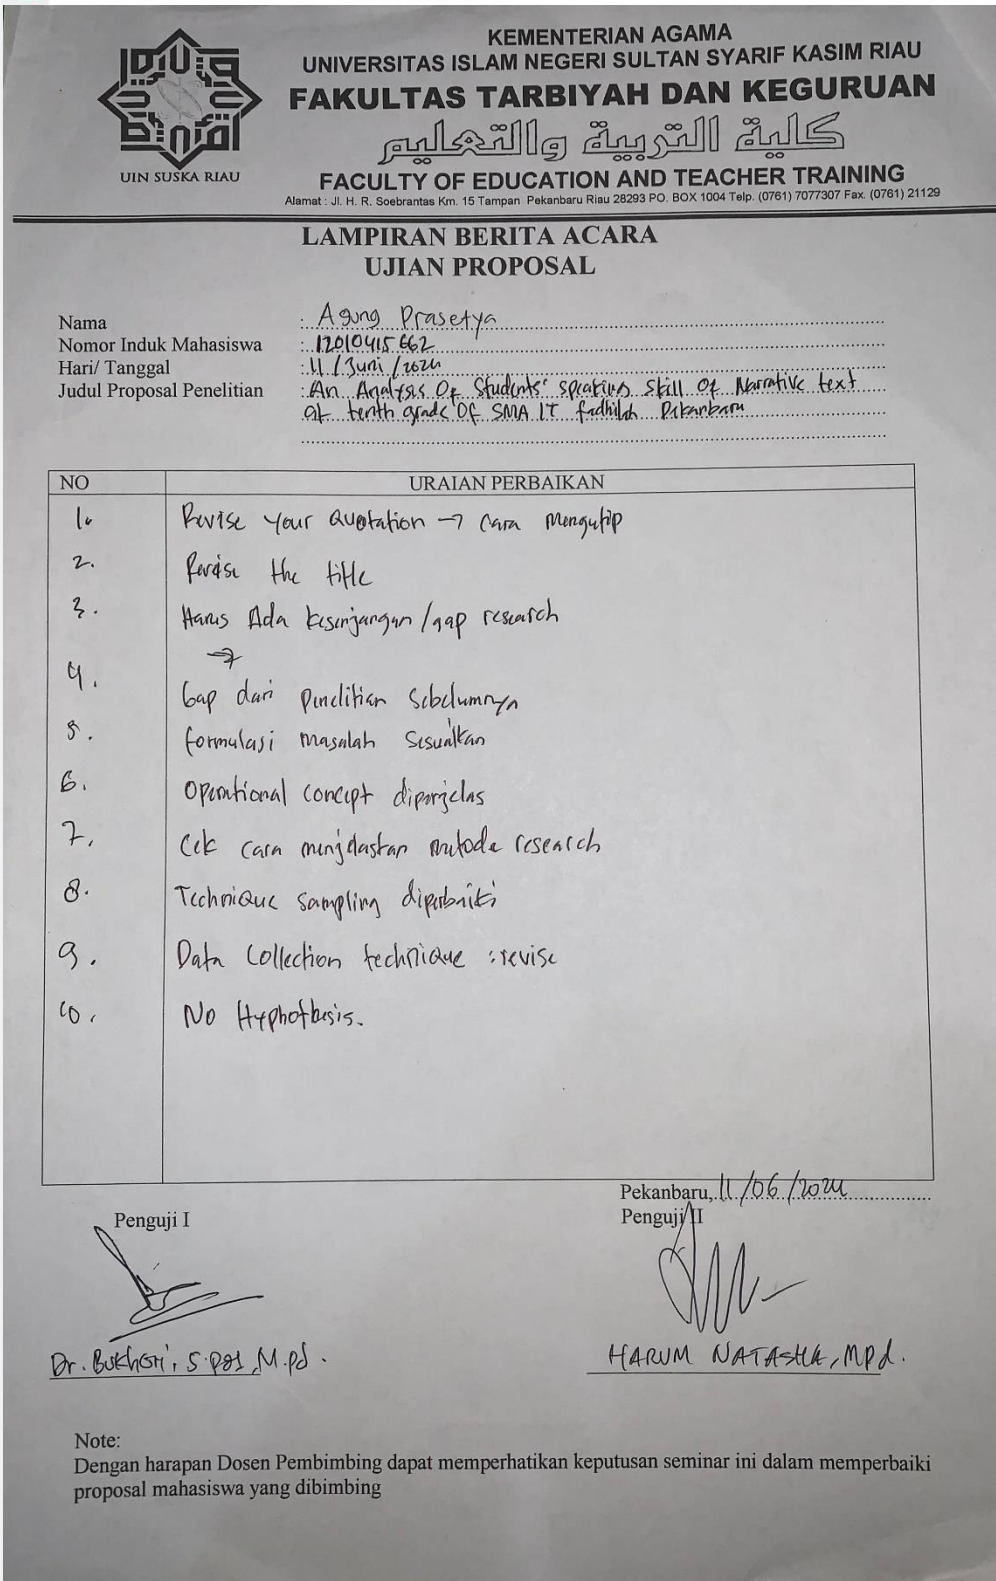 UIN SUSKA RIAU
KEMENTERIAN AGAMA
UNIVERSITAS ISLAM NEGERI SULTAN SYARIF KASIM RIAU
FAKULTAS TARBIYAH DAN KEGURUAN
كلية التربية والتعليم
FACULTY OF EDUCATION AND TEACHER TRAINING
Alamat : Jl. H. R. Soebrantas Km. 15 Tampan Pekanbaru Riau 28293 PO. BOX 1004 Telp. (0761) 7077307 Fax. (0761) 21129
LAMPIRAN BERITA ACARA
UJIAN PROPOSAL
Nama : Agung Prasetya
Nomor Induk Mahasiswa : 12010415662
Hari/ Tanggal : 11/Juni/2024
Judul Proposal Penelitian : An Analysis Of Students' speaking skill Of Narrative text
at tenth grade Of SMA IT fadhilah Pekanbaru
NO URAIAN PERBAIKAN
1. Revise Your Quotation → Cara Mengutip
2. Revise the title
3. Harus Ada kesenjangan/gap research
→
4. Gap dari penelitian sebelumnya
5. formulasi masalah sesuaikan
6. Operational concept diperjelas
7. Cek cara menjelaskan metode research
8. Technique sampling diperbaiki
9. Data Collection technique : revise
10. No Hyphothesis.
Pekanbaru, 11/06/2024
Penguji I Penguji II
Dr. Bukhori, S.PdI, M.Pd. HARUM NATASHA, MPd.
Note:
Dengan harapan Dosen Pembimbing dapat memperhatikan keputusan seminar ini dalam memperbaiki
proposal mahasiswa yang dibimbing